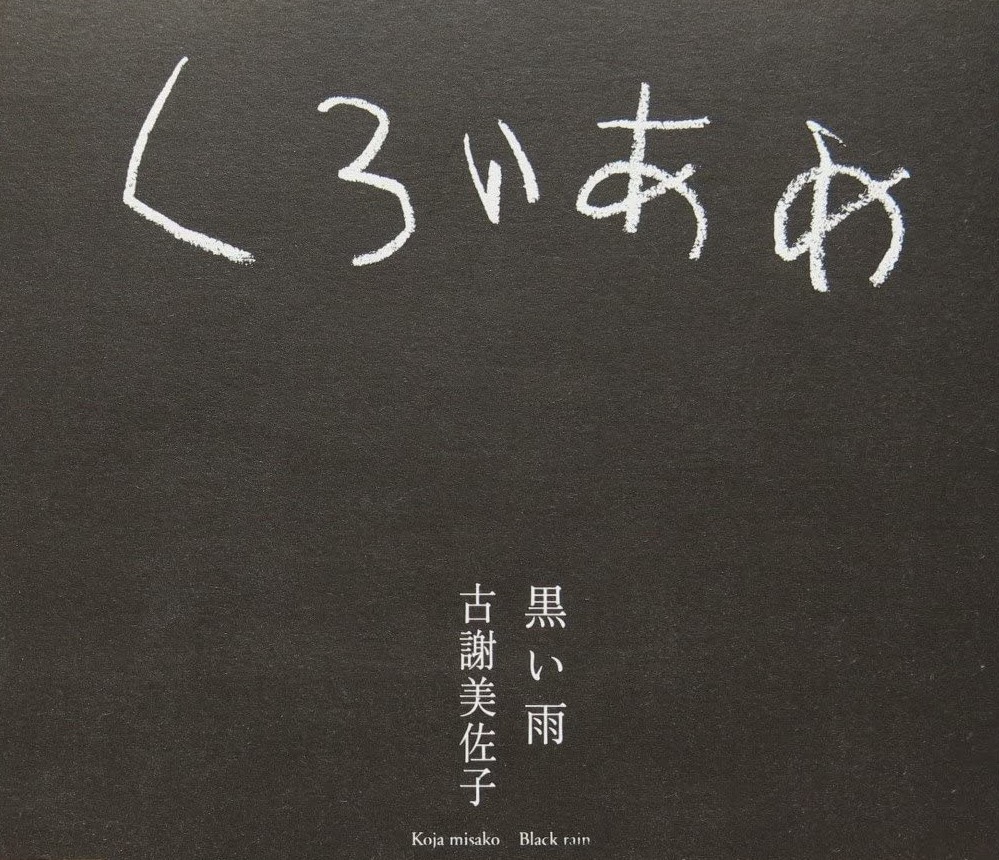 くろいあめ
黒い雨
古謝美佐子
Koja misako Black rain